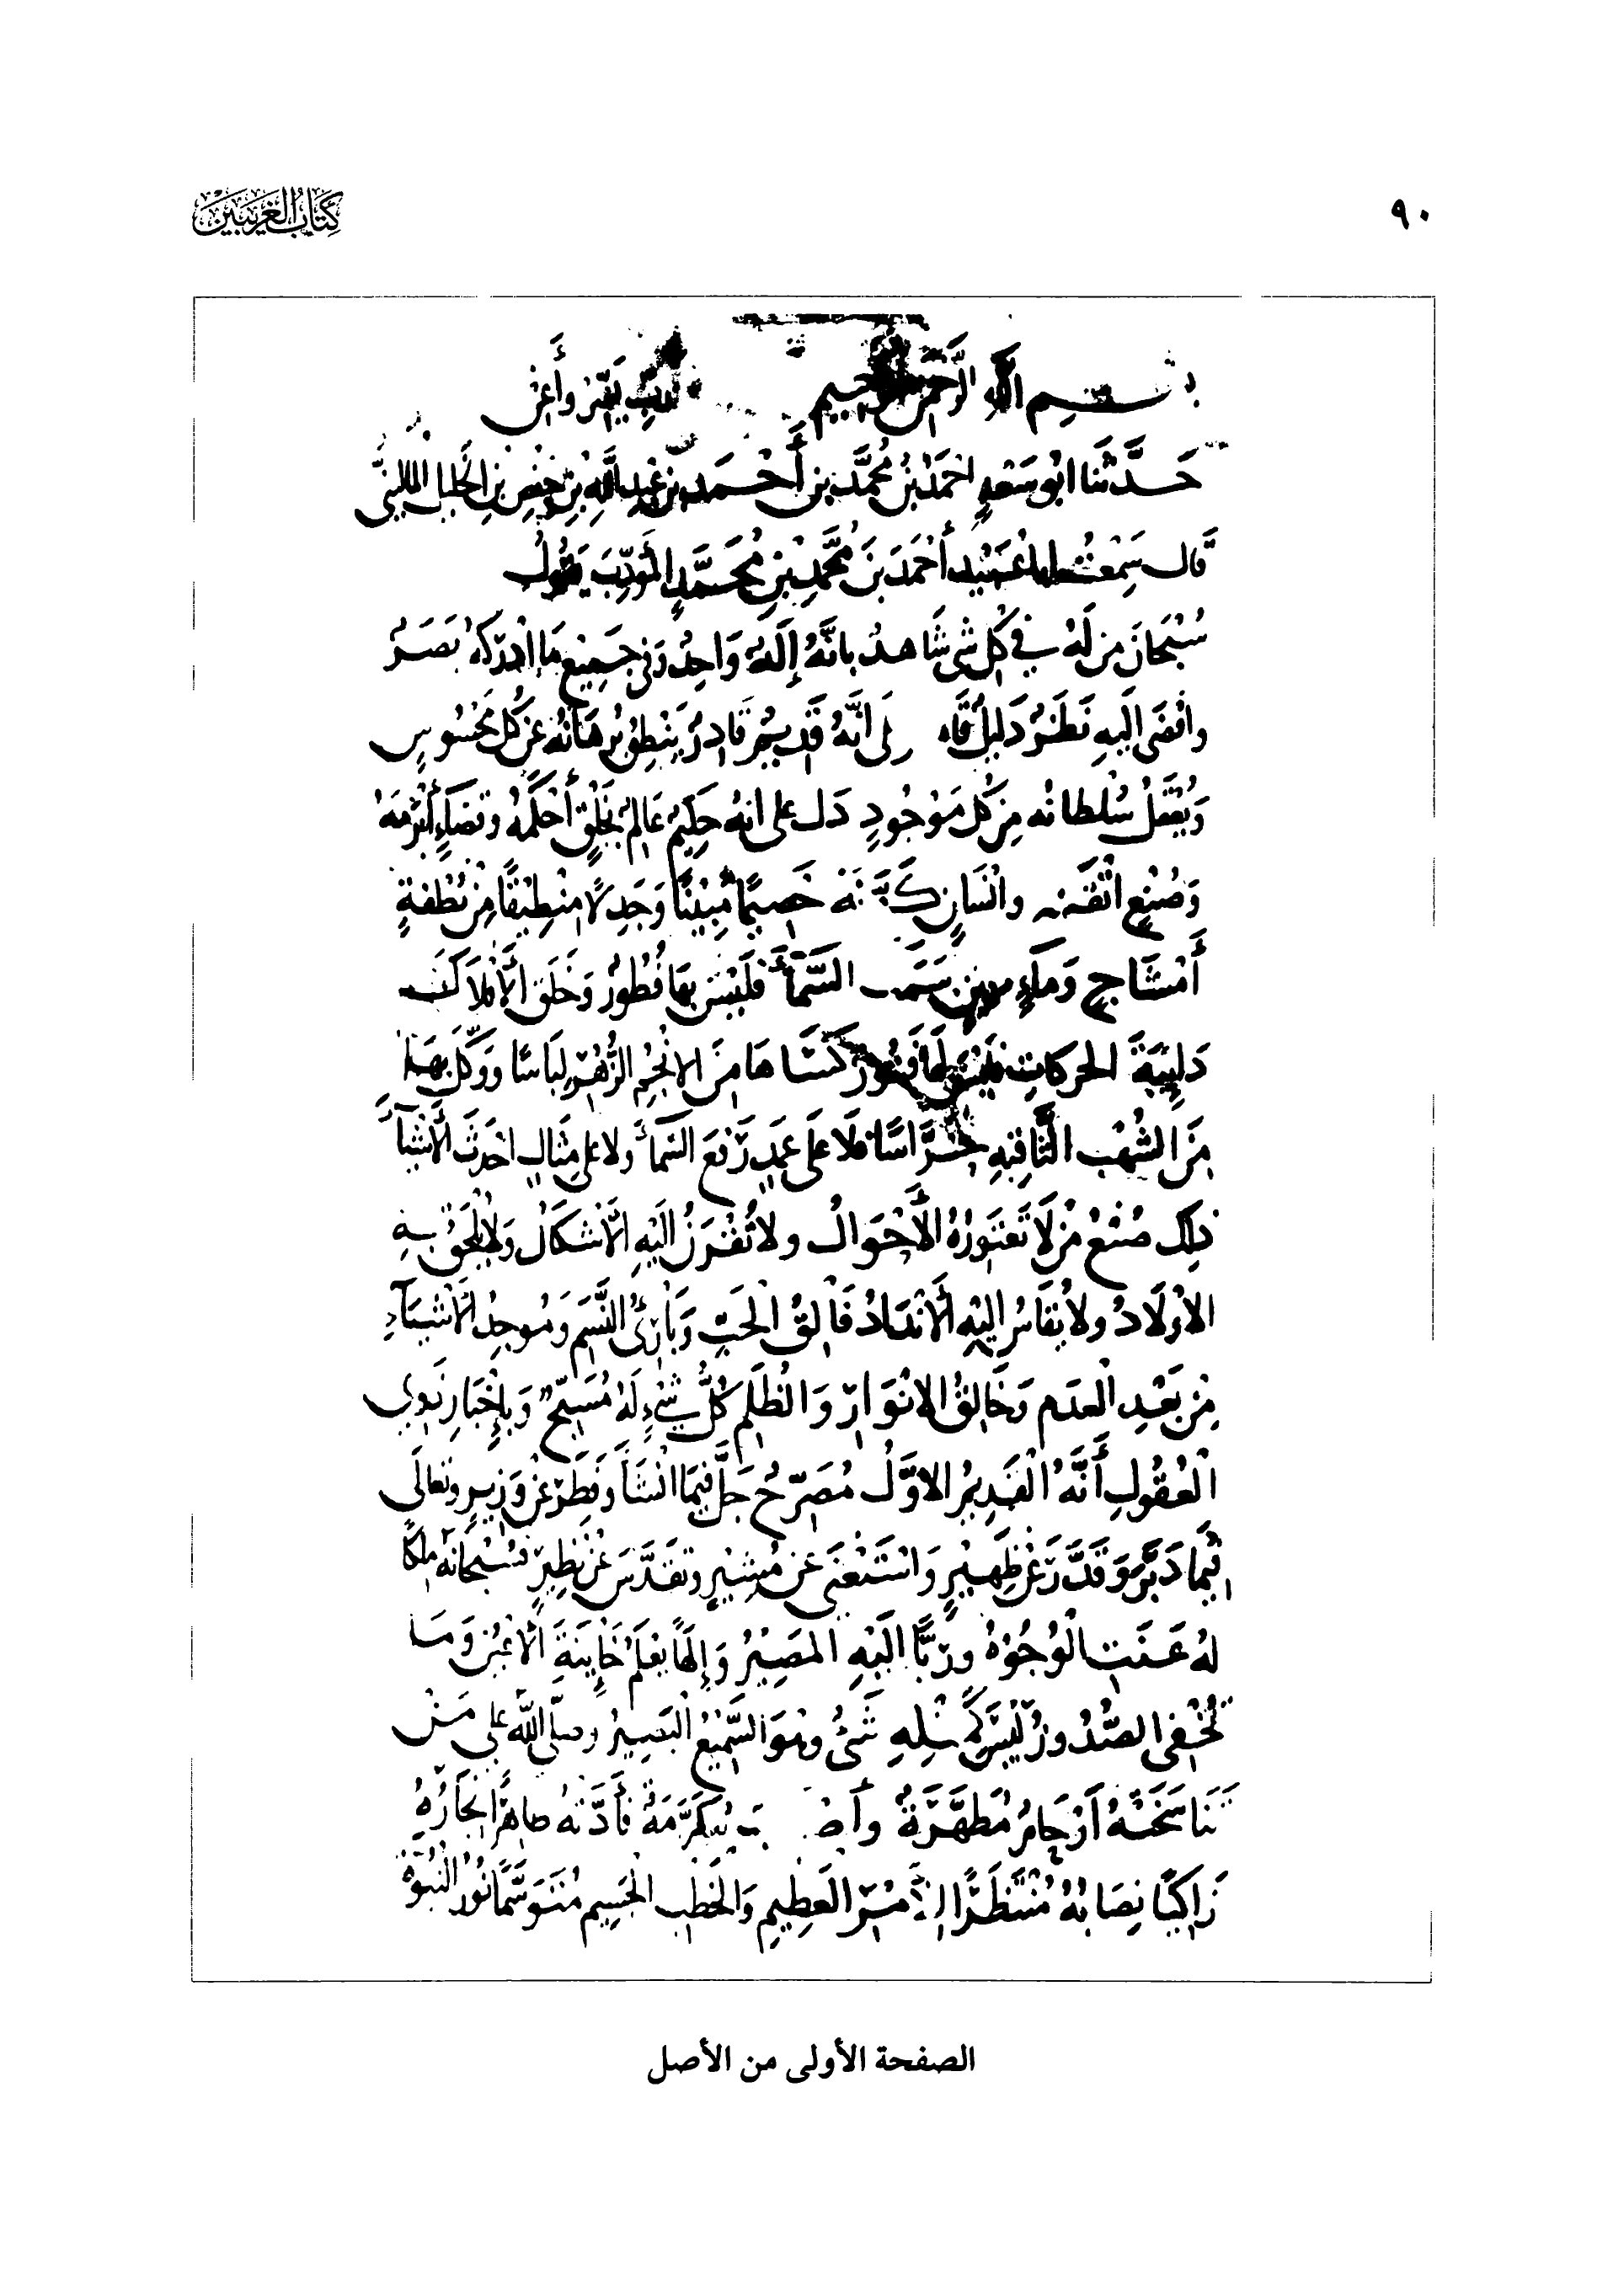 ٩٠
كتاب الغريبين
بسم الله الرحمن الرحيم رب يسر وأعن
حَدَّثنا ابُو سَعْدٍ احْمَدُ بْنُ مُحمَّد بن أَحْمَد بن عَبدِ اللَّهِ بنِ حَفْصِ بنِ الخليل الماليني
قال سَمِعْتُ ابا عُبَيْد أَحْمَدَ بنَ مُحمَّدِ بنِ مُحَمَّدٍ المُؤَدِّبَ يَقُولُ
سُبْحَانَ من لَهُ في كُل شي شَاهدٌ بانَّهُ إِلَهٌ وَاحِدٌ وَفي جَمِيْع مَا ادْرَكَهُ بَصَرٌ
وافْضَى اليَهِ نَظَرٌ دَلِيلٌ قَا لَى انَّهُ قَدِيْمٌ قَادِرٌ يَنْطِقُ بُرهَانُه عَن كُل مَحْسُوسٍ
وَيُعْقَلُ سُلْطانُه مِن كُل مَوْجُودٍ دَل على انهُ حَكِيمٌ عَالِمٌ بخَلْقٍ أحْكَمَهُ وقضاءٍ أَبْرَمَهُ
وَصُنْعٍ اتْقَنه وانْسَانٍ كَوَّنَهُ خَصِيمًا مُبِيْنًا وَجَدِلًا مِنْطِيقًا مِنْ نُطْفَةٍ
أَمْشَاجٍ وَمَاءٍ مهين سَمَك السَّمَاءَ فَلَيْسَ بهَا فُطُورٌ وَخَلَقَ الأَفْلَاكَ
دَايِبَةَ الحركاتِ فليْسَ لَهَا فُتُورٌ كَسَاهَا مِنَ الانْجُمِ الزُّهْرِ لِبَاسًا وَوَكَّل بهَا
مِنَ الشُهُب الثَّاقِبَهِ حُرَّاسًا فلَا عَلى عَمَدٍ رَفَعَ السَّمَاءَ ولا على مِثَالٍ احْدَثَ الأَشْيَآءَ
ذلِكَ صُنْعُ مَنْ لَا تَعْتَوِرُهُ الأَحْوَالُ ولا تُقْرَنُ الَيْهِ الأَشْكَالُ وَلا يَلْحَقُ بِهِ
الأوْلَادُ ولا يُقَاسُ اليْهِ الأنْدَادُ فَالِقُ الحَبّ وَبَارِئُ النَّسَمِ وَمُوجِدُ الأَشْيَآءِ
مِنْ بَعْدِ العَدَم وَخَالِقُ الانْوَارِ وَالظُلَمِ كُلُّ شَيْءٍ لَهُ مُسَبِّحٌ وَبِإخْبَارِ ذَوِي
العُقُولِ أَنَّهُ القَدِيمُ الاوَّلُ مُصَرِّحٌ جَلَّ فِيمَا انْشَأَ وَفَطَرَ عَنْ وَزِيرٍ وتعالَى
فِيْمَا دَبَّرَ وَقَدَّرَ عَنْ ظَهِيْرٍ وَاسْتَغْنَى عَن مُشِيْرٍ وتَقَدَّسَ عَنْ نَظِيرٍ فسُبْحَانَهُ مَلِكًا
لهُ عَنَتِ الوُجُوْهُ ورَبًّا الَيْهِ المَصِيْرُ وَإِلَهًا يَعْلَمُ خَايِنَةَ الأعْيُنِ وَمَا
تُخْفِي الصُّدُورُ لَيْسَ كَمِثْلِهِ شَئٌ وهُوَ السَّمِيْعُ البَصِيْرُ وصلى اللَّهُ على مَنْ
تَنَاسَخَتْهُ أَرْحَامٌ مُطَهَّرَةٌ وأَصْ بٌ مُكَرَّمَةٌ فَأَدَّتْهُ طاهِرًا نِجَارُهُ
زَاكِيًا نِصَابُهُ مُنْتَظَرًا للأمْرِ العَظِيمِ وَالخَطْبِ الجَسِيمِ مُتَوَسَّمًا نُورُ النُبُوَّةِ
الصفحة الأولى من الأصل